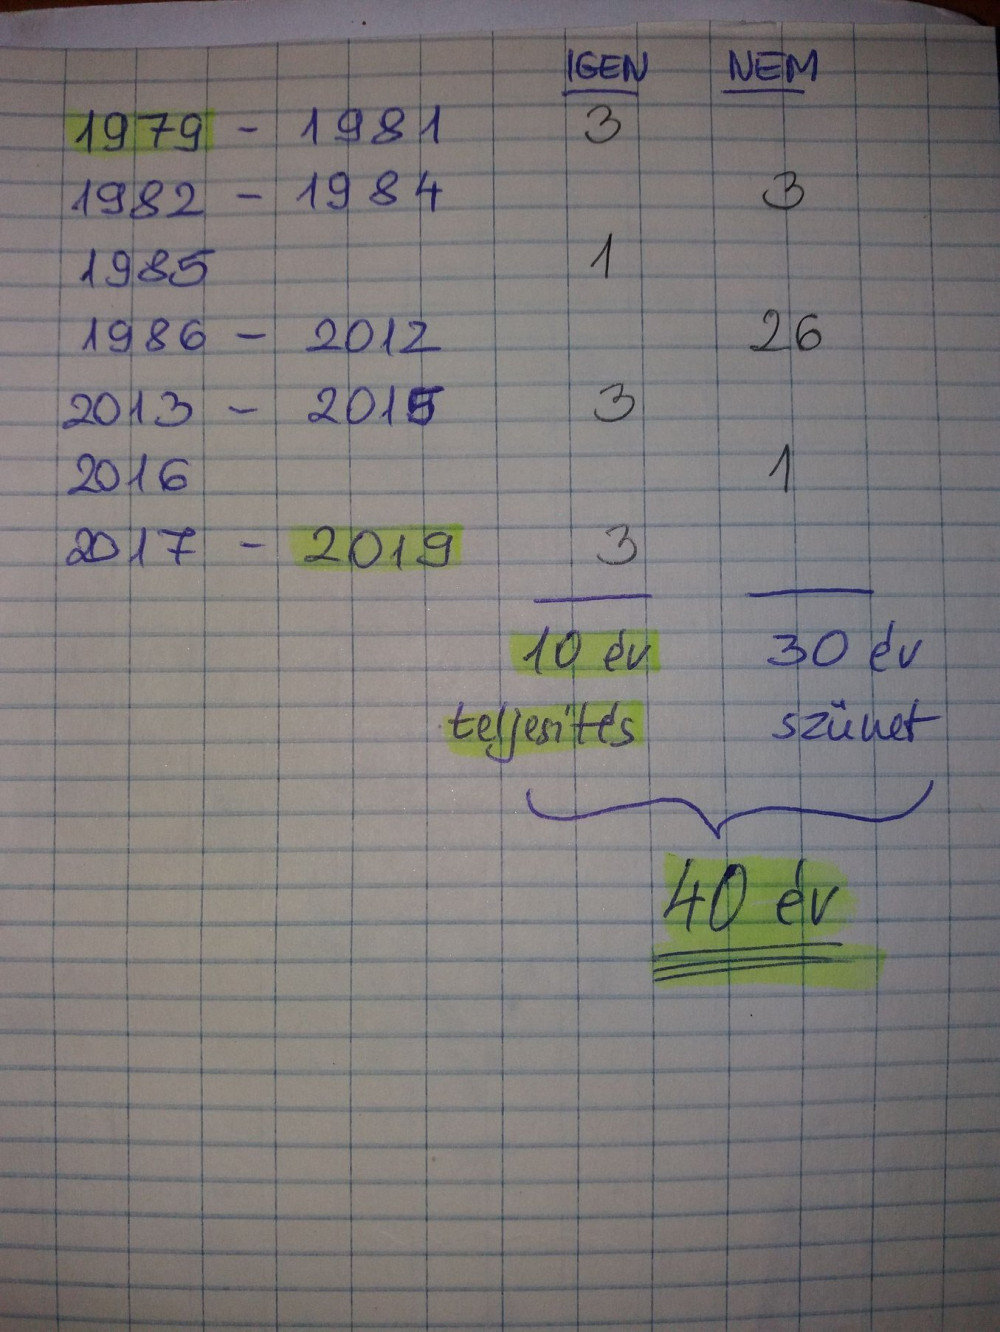 IGEN NEM
1979 - 1981 3
1982 - 1984 3
1985 1
1986 - 2012 26
2013 - 2015 3
2016 1
2017 - 2019 3
10 év 30 év
teljesítés szünet
40 év